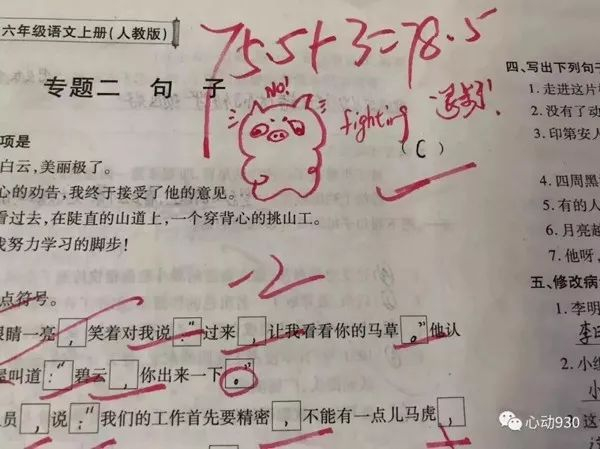 六年级语文上册(人教版)
75.5+3=78.5
专题二 句 子
NO!
fighting 退步了!
项是
(C)
白云,美丽极了。
心的劝告,我终于接受了他的意见。
看过去,在陡直的山道上,一个穿背心的挑山工。
我努力学习的脚步!
-2
点符号。
眼睛一亮,笑着对我说:“过来,让我看看你的马草。”他认
屋叫道:“碧云,你出来一下。”
员,说:“我们的工作首先要精密,不能有一点儿马虎,
四、写出下列句子
1. 走进这片
2. 没有了动
3. 印第安人
4. 四周黑
5. 有的人
6. 月亮越
7. 他呀,
五、修改病
1. 李明
2. 小组
3. 这
心动930